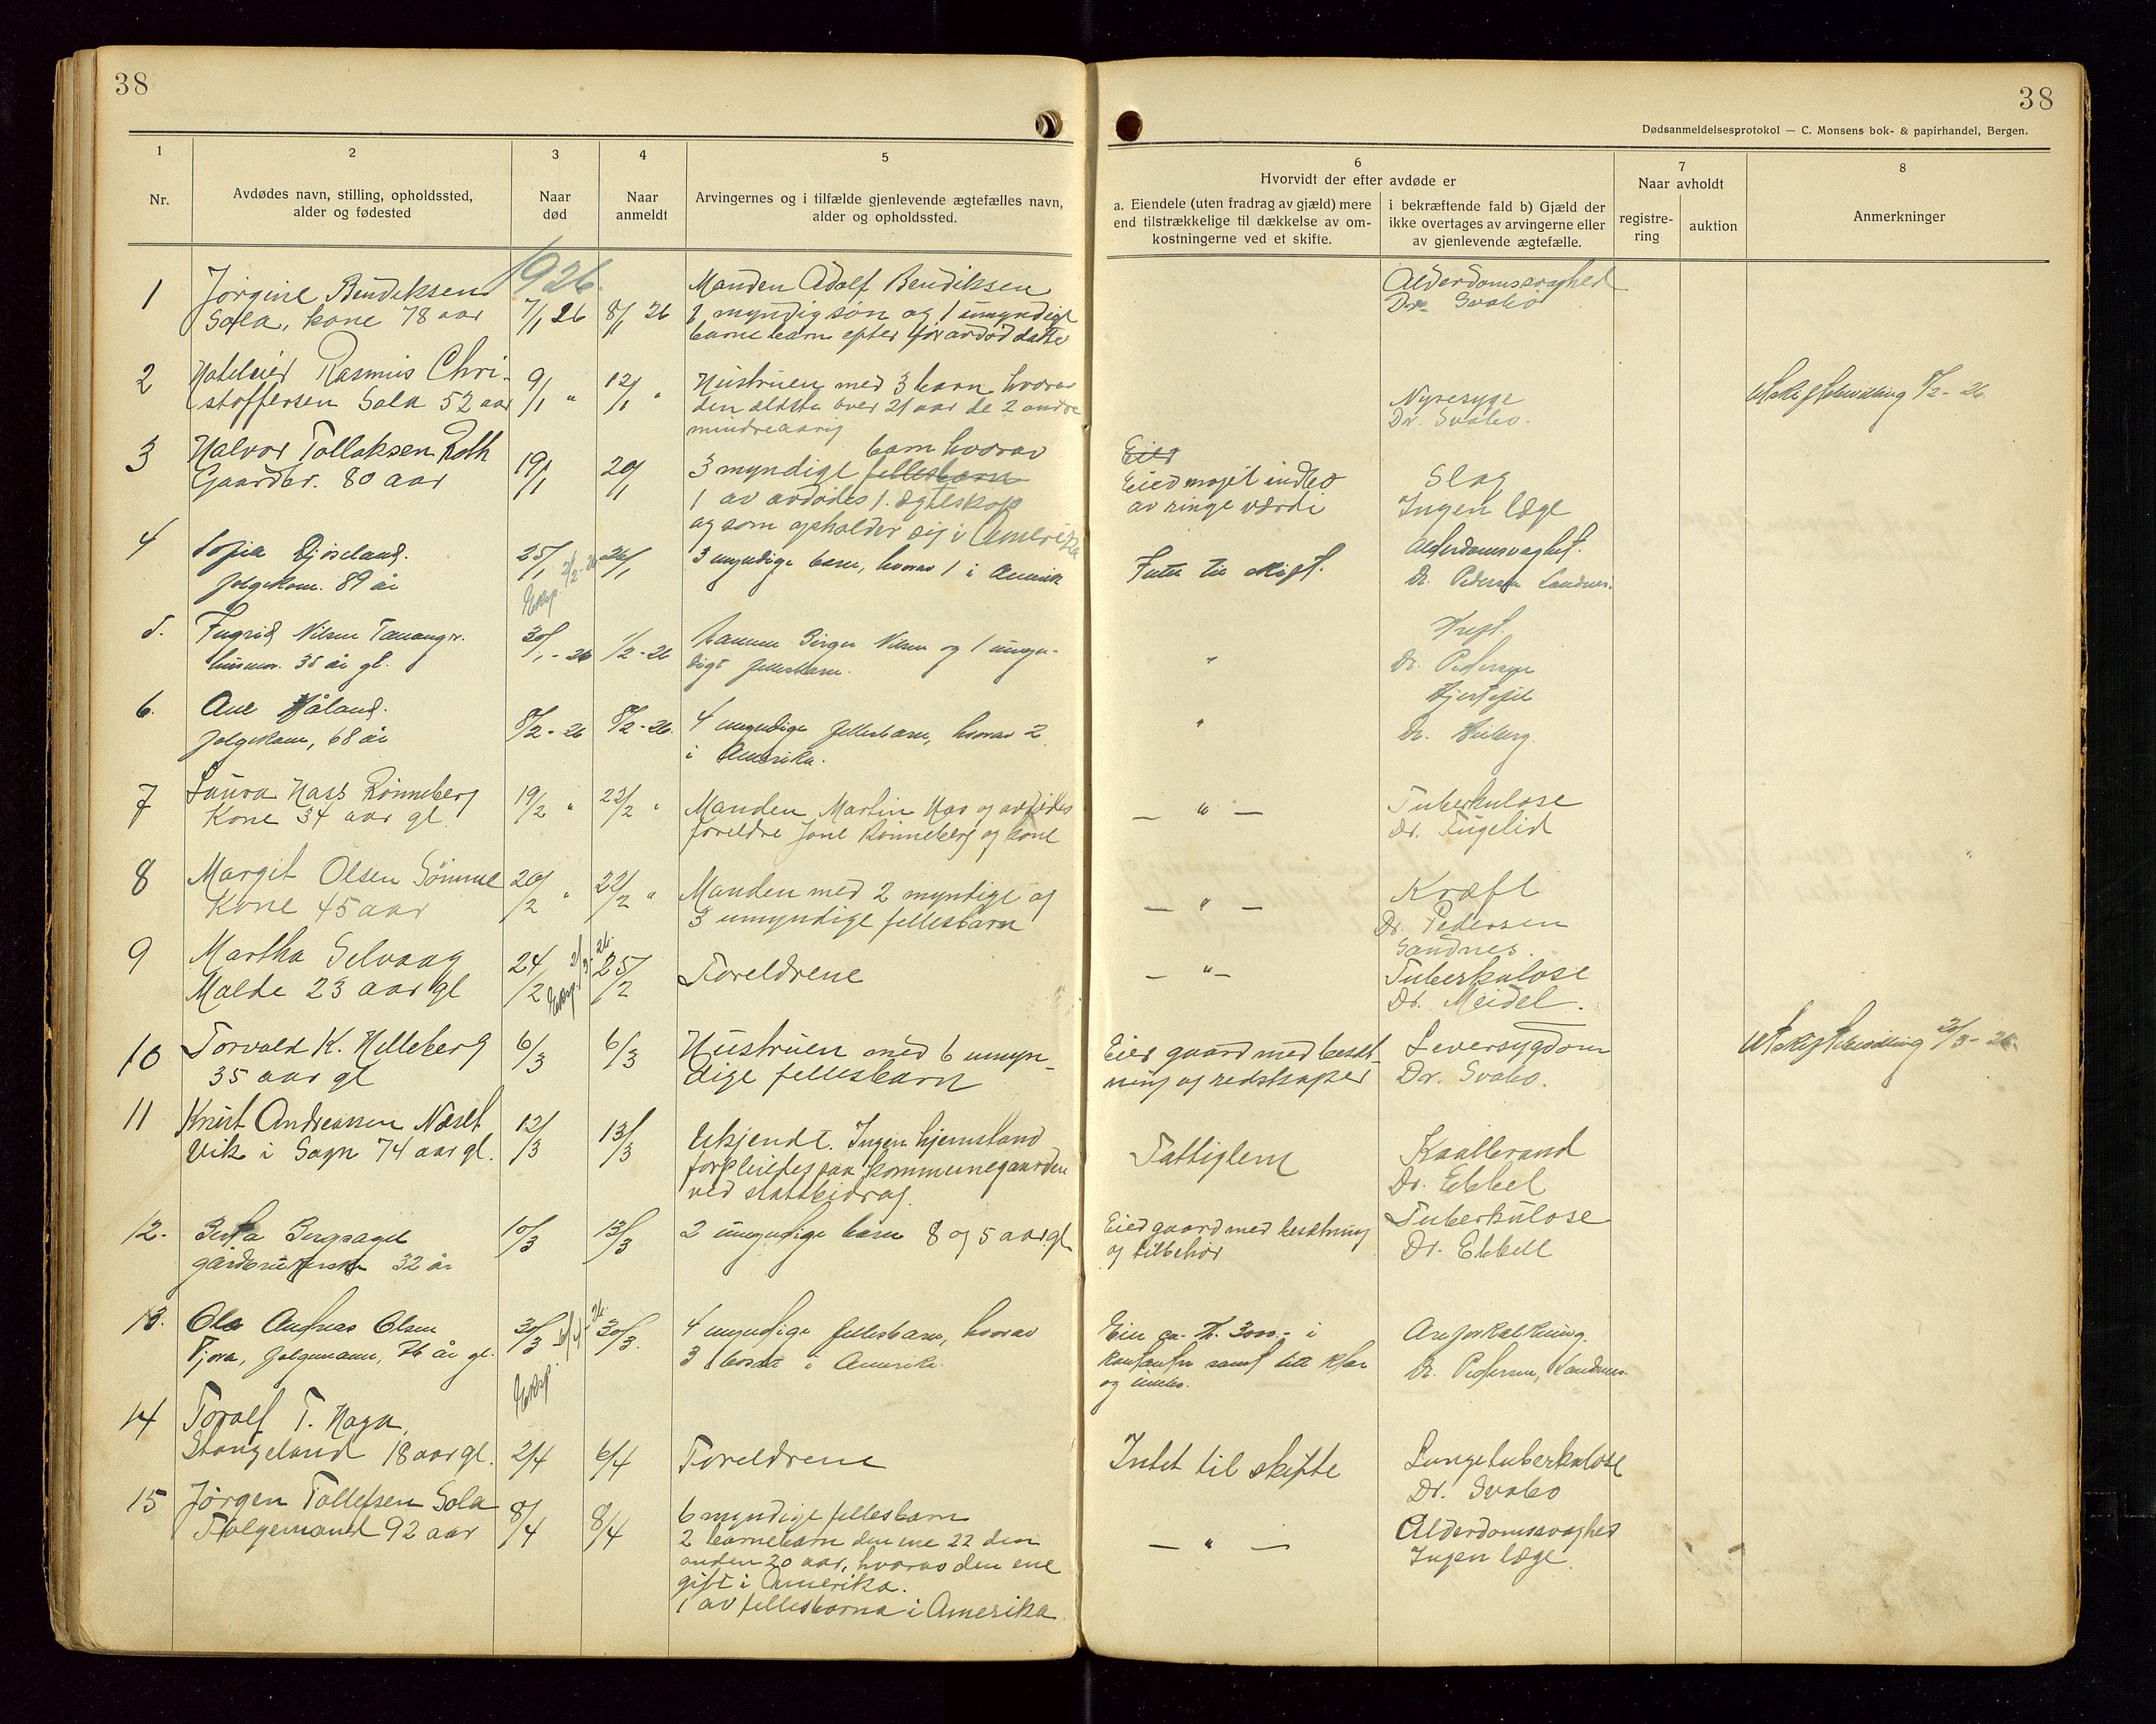 38
38
Dødsanmeldelsesprotokol — C. Monsens bok- & papirhandel, Bergen.
1
2
3
4
5
6
7
8
Nr.
Avdødes navn, stilling, opholdssted,
alder og fødested
Naar
død
Naar
anmeldt
Arvingernes og i tilfælde gjenlevende ægtefælles navn,
alder og opholdssted.
Hvorvidt der efter avdøde er
a. Eiendele (uten fradrag av gjæld) mere
end tilstrækkelige til dækkelse av om-
kostningerne ved et skifte.
i bekræftende fald b) Gjæld der
ikke overtages av arvingerne eller
av gjenlevende ægtefælle.
Naar avholdt
registre-
ring
auktion
Anmerkninger
1926.
1
Jørgine Bendiksen
Sola, kone 78 aar
7/1 26
8/1 26
Manden Adolf Bendiksen
1 myndig søn og 1 umyndigt
barnebarn efter før avdød datter
Alderdomssvaghed
Dr. Svabo
2
Hoteleier Rasmus Chri-
stoffersen Sola 52 aar
9/1 "
12/1 "
Hustruen med 3 barn hvorav
den ældste over 21 aar de 2 andre
mindreaarig
Nyresyge
Dr. Svabo.
Uskiftebevilling 8/2 - 26.
3
Halvor Tollaksen Roth
Gaardbr. 80 aar
19/1
20/1
barn hvorav
3 myndige fellesbarn
1 av avdødes 1. ægteskap
og som opholder sig i Amerika
Eier
Eied noget indbo
av ringe værdi
Slag
Ingen læge
4
Sofia
folgekone. 89 år
25/1
26/1
Eksp. 2/2-26
3 myndige barn, hvorav 1 i Amerika
Intet til skifte.
Alderdomsvaghet.
Dr. Pedersen Sandnes.
5.
Ingrid Nilsen Tananger.
husmor. 35 år gl.
30/1 - 26
1/2 - 26
Mannen Birger Nilsen og 1 umyn-
digt fellesbarn.
"
Kreft.
Dr. Pedersen
6.
Ane Håland.
folgekone, 68 år
8/2 - 26
8/2 - 26.
4 myndige fellesbarn, hvorav 2
i Amerika.
"
Hjertefeil
Dr.
7
Laura Hass Rønneberg
Kone 34 aar gl.
19/2 "
22/2 "
Manden Martin Has og avdødes
foreldre Jone Rønneberg og kone
— " —
Tuberkulose
Dr. Fugelid
8
Margit Olsen Sømme
Kone 45 aar
20/2 "
22/2 "
Manden med 2 myndige og
3 umyndige fellesbarn
— " —
Kræft
Dr. Pedersen
Sandnes.
9
Martha Selvaag
Malde 23 aar gl
24/2
25/2
Eksp. 2/3-26.
Foreldrene
— " —
Tuberkulose
Dr. Meidel.
10
Torvald K. Helleberg
35 aar gl
6/3
6/3
Hustruen med 6 umyn-
dige fellesbarn
Eier gaard med besæt-
ning og redskaper
Leversygdom
Dr. Svabo.
Uskiftebevilling 20/3 - 26.
11
Knut Andreassen Næset
Vik i Sogn 74 aar gl.
12/3
13/3
Ukjendt. Ingen hjemstand
forpleiedes paa kommunegaarden
ved statsbidrag.
Fattiglem
Kaalbrand
Dr. Ebbel
12.
Berta Bergsagel
gårdbrukerske 32 år
10/3
13/3
2 umyndige barn 8 og 5 aar gl
Eied gaard med besætning
og tilbehør
Tuberkulose
Dr. Ebbell
13.
Ole Andreas Olsen
Tjora, folgemann, 76 år gl.
30/3
30/3.
Eksp.
4 myndige fellesbarn, hvorav
3 bosat i Amerika.
Eier ca. kr. 3000.- i
kontanter samt litt klær
og innbo.
Areforkalkning.
Dr. Pedersen, Sandnes.
14
Toralf T. Haga,
Stangeland 18 aar gl.
2/4
6/4
Foreldrene
Intet til skifte
Lungetuberkulose
Dr. Svabo
15
Jørgen Tollefsen Sola
Folgemand 92 aar
8/4
8/4
6 myndige fellesbarn
2 barnebarn den ene 22 den
anden 20 aar, hvorav den ene
gift i Amerika.
1 av fellesbarna i Amerika.
— " —
Alderdomssvaghed
Ingen læge.